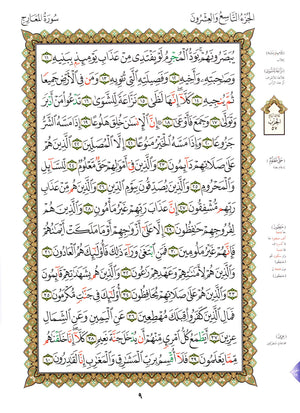 الجزء التاسع والعشرون
سورة المعارج
يبصرونهم يود المجرم لو يفتدي من عذاب يومئذ ببنيه ١١
وصاحبته وأخيه ١٢ وفصيلته التي تؤويه ١٣ ومن في الأرض جميعا
ثم ينجيه ١٤ كلا إنها لظى ١٥ نزاعة للشوى ١٦ تدعوا من أدبر
وتولى ١٧ وجمع فأوعى ١٨ إن الإنسن خلق هلوعا ١٩ إذا مسه الشر
جزوعا ٢٠ وإذا مسه الخير منوعا ٢١ إلا المصلين ٢٢ الذين هم
على صلاتهم دايمون ٢٣ والذين في أموالهم حق معلوم ٢٤ للسايل
والمحروم ٢٥ والذين يصدقون بيوم الدين ٢٦ والذين هم من عذاب
ربهم مشفقون ٢٧ إن عذاب ربهم غير مأمون ٢٨ والذين هم
لفروجهم حافظون ٢٩ إلا على أزواجهم أو ما ملكت أيمانهم
فإنهم غير ملومين ٣٠ فمن ابتغى وراء ذلك فأولئك هم العادون ٣١
والذين هم لأماناتهم وعهدهم راعون ٣٢ والذين هم بشهاداتهم قايمون
٣٣ والذين هم على صلاتهم يحافظون ٣٤ أولئك في جنات مكرمون ٣٥
فمال الذين كفروا قبلك مهطعين ٣٦ عن اليمين وعن الشمال
عزين ٣٧ أيطمع كل امرئ منهم أن يدخل جنة نعيم ٣٨ كلا إنا خلقناهم
مما يعلمون ٣٩ فلا أقسم برب المشارق والمغارب إنا لقادرون ٤٠
الجزء
٥٧
٩